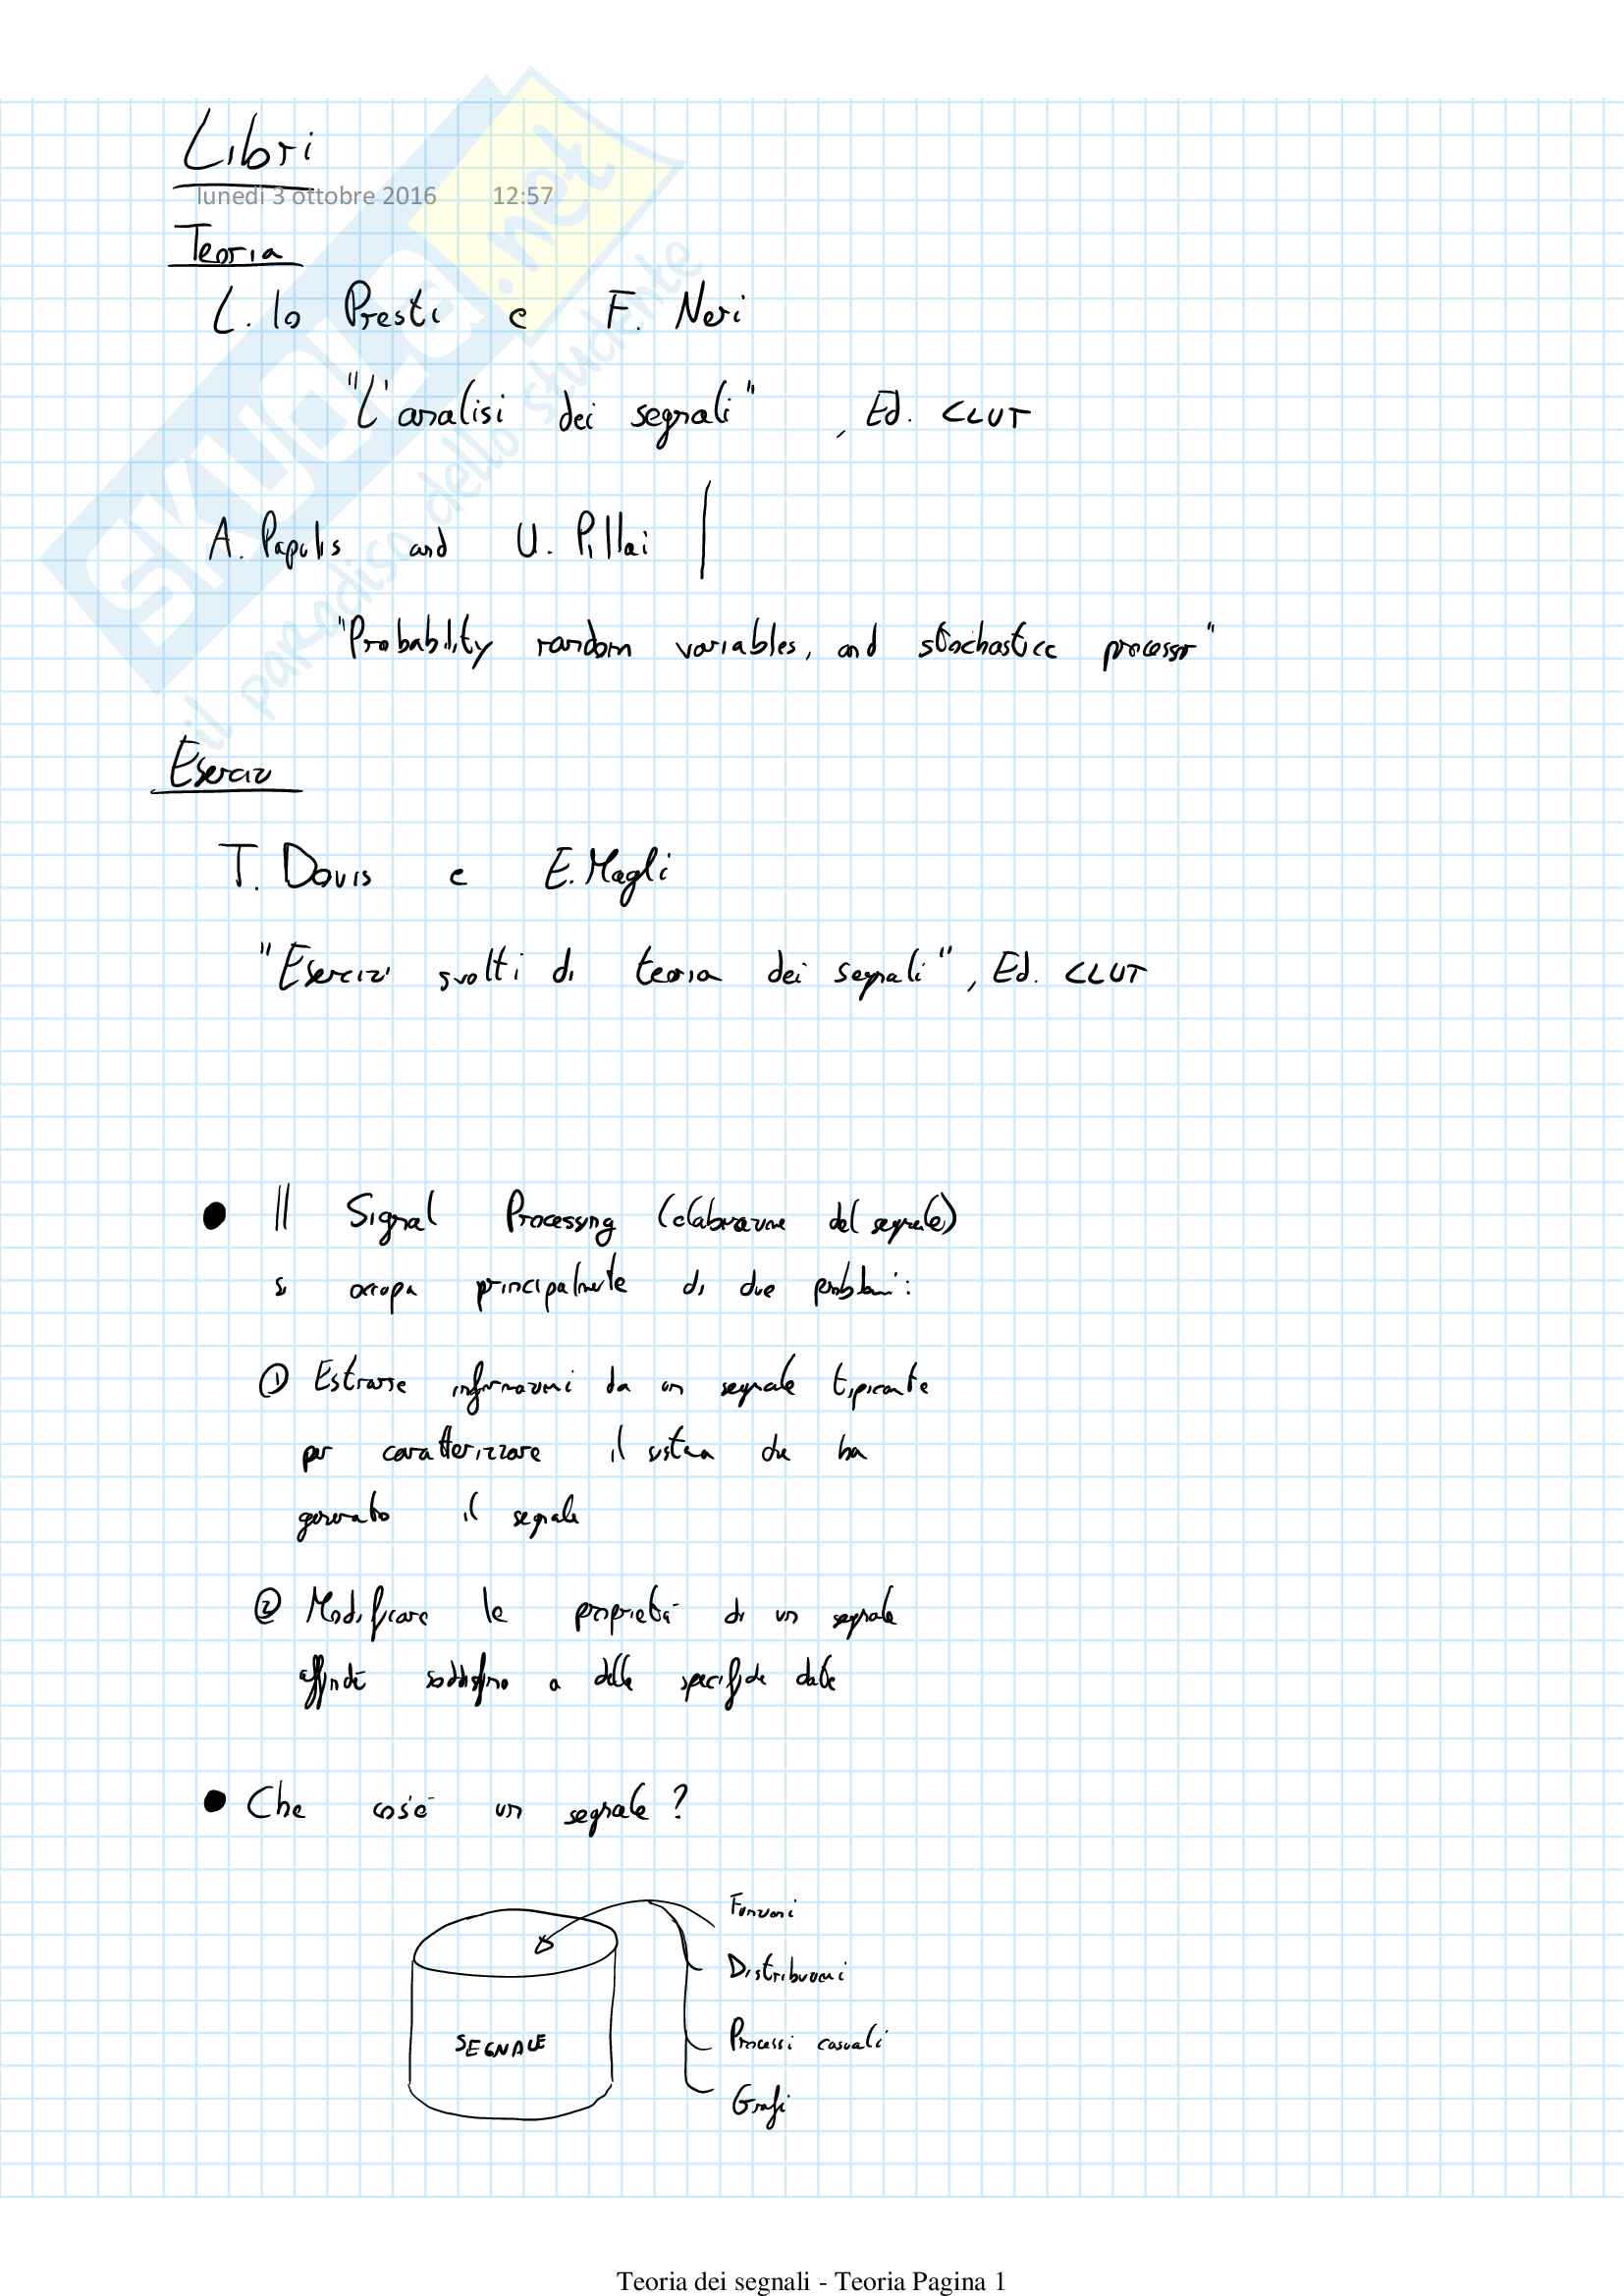 Libri
lunedì 3 ottobre 2016 12:57
Teoria
L. lo Presti e F. Neri
"L'analisi dei segnali" , Ed. CLUT
A. Papulis and U. Pillai
"Probability random variables, and stochastice processor"
Esercizi
T. Davis e E. Magli
"Esercizi svolti di teoria dei segnali", Ed. CLUT
● Il Signal Processing (elaborazione del segnale)
si occupa principalmente di due problemi:
① Estrarre informazioni da un segnale tipicamente
per caratterizzare il sistema che ha
generato il segnale
② Modificare le proprietà di un segnale
affinché soddisfino a delle specifiche date
● Che cos'è un segnale?
Funzioni
Distribuzioni
SEGNALE
Processi casuali
Grafi
SKUOLA.net
il paradiso dello studente
Teoria dei segnali - Teoria Pagina 1